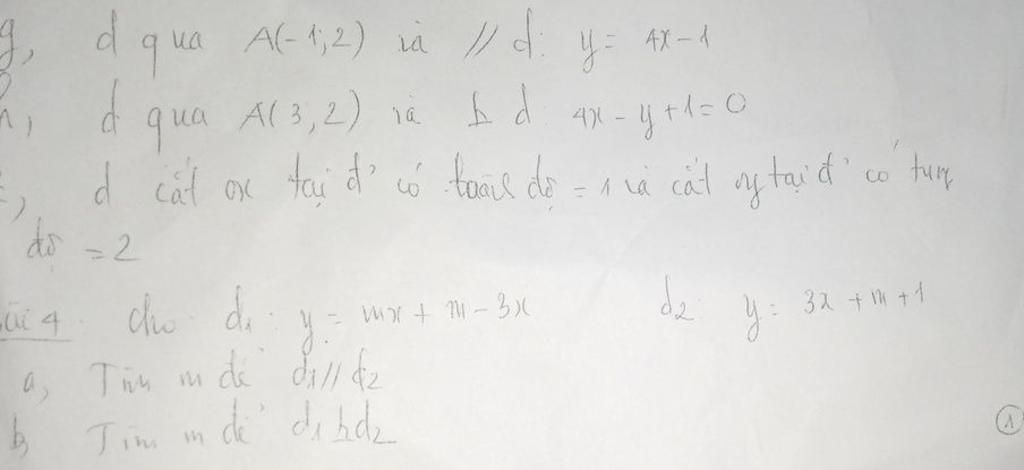 g, d qua A(-1;2) và // d: y = 4x - 1
h, d qua A(3,2) và ⊥ d: 4x - y + 1 = 0
i, d cắt ox tại đ' có hoành độ = 1 và cắt oy tại đ' có tung
độ = 2
Bài 4 cho d1: y = mx + m - 3x d2: y = 3x + m + 1
a, Tìm m để d1 // d2
b, Tìm m để d1 ⊥ d2
1